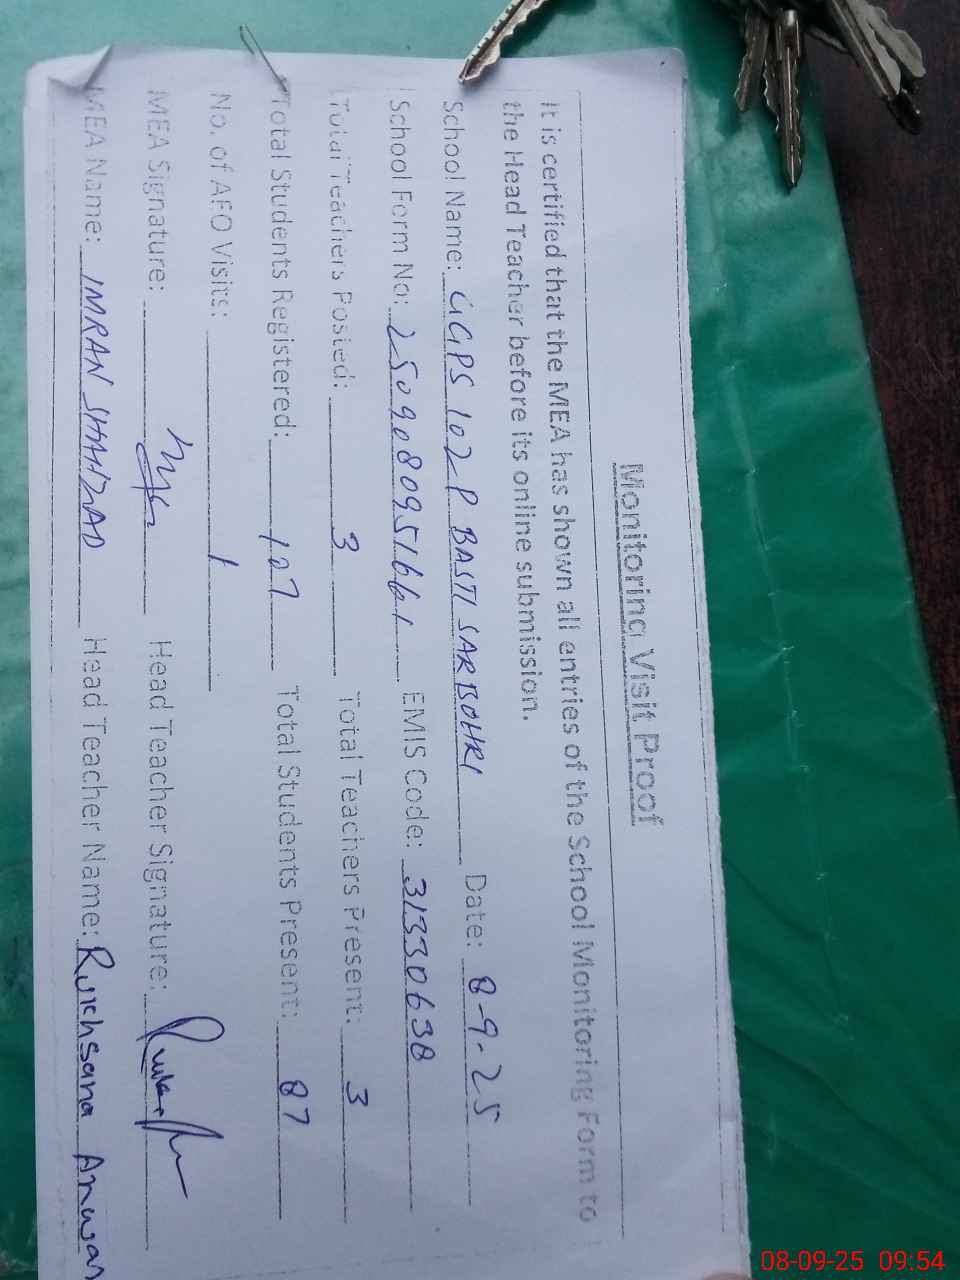 Monitoring Visit Proof
It is certified that the MEA has shown all entries of the School Monitoring Form to
the Head Teacher before its online submission.
School Name: GGPS 102 P BASTI SARBOHRI Date: 8-9-25
School Form No: 2509080951661 EMIS Code: 31330638
Total Teachers Posted: 3 Total Teachers Present: 3
Total Students Registered: 107 Total Students Present: 87
No. of AEO Visits: 1
MEA Signature: Head Teacher Signature:
MEA Name: IMRAN SHAHZAD Head Teacher Name: Rukhsana Anwar
08-09-25 09:54